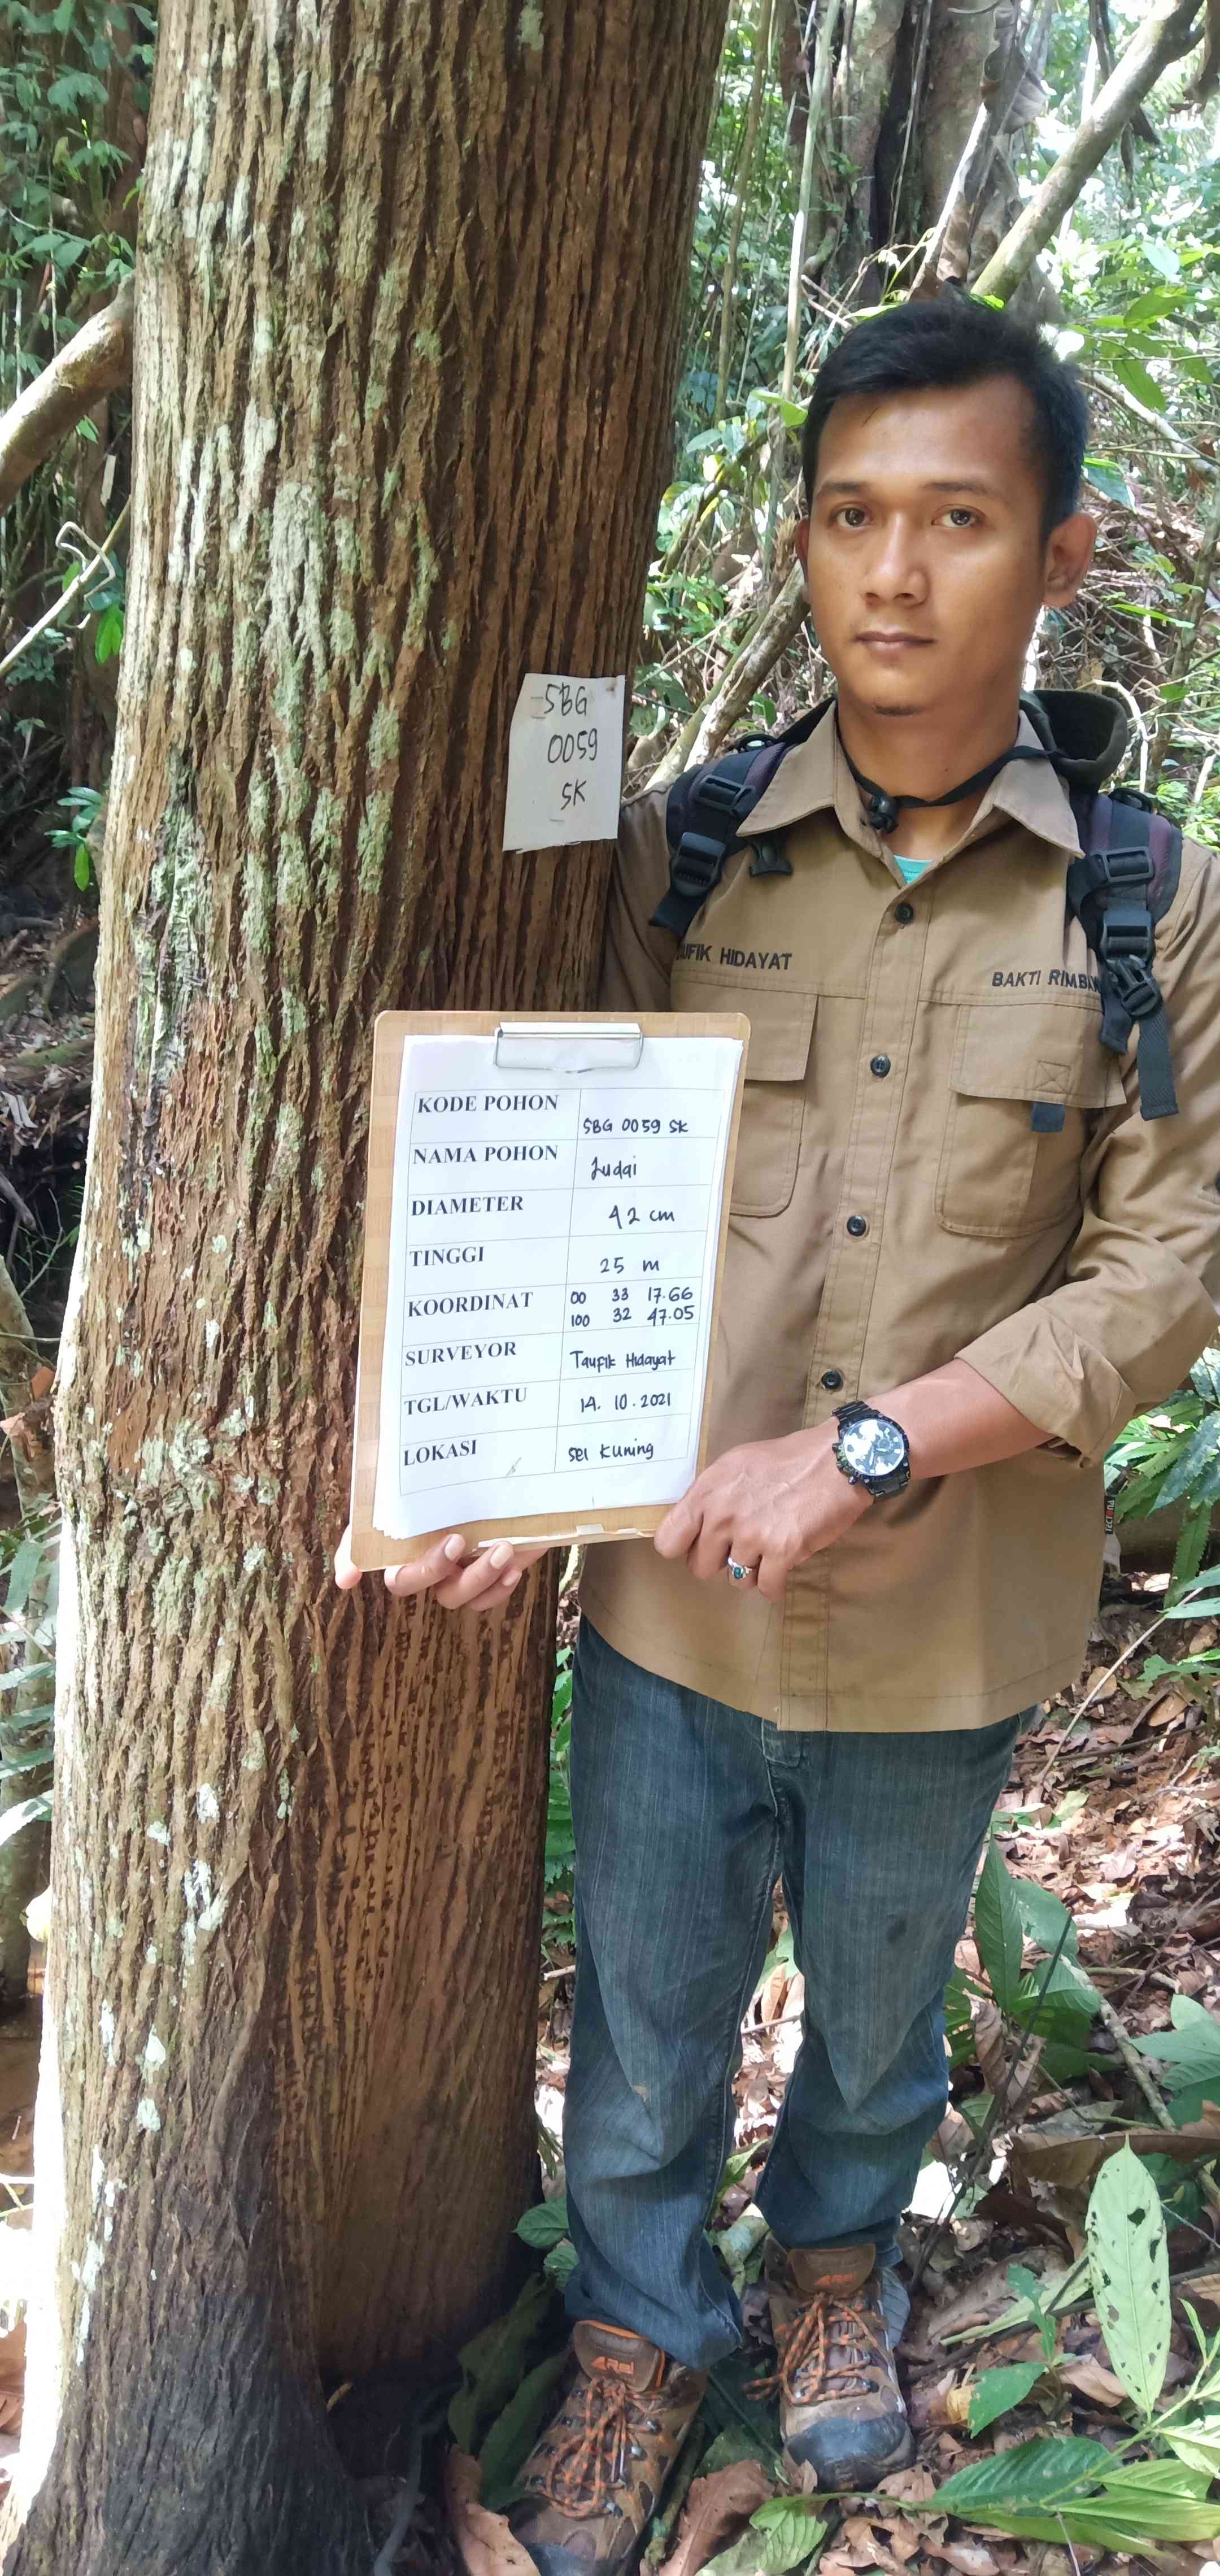 SBG
0059
SK
UFIK HIDAYAT
BAKTI RIMB
KODE POHON
SBG 0059 SK
NAMA POHON
Judai
DIAMETER
42 cm
TINGGI
25 m
KOORDINAT
00 33 17.66
100 32 47.05
SURVEYOR
Taufik Hidayat
TGL/WAKTU
14. 10. 2021
LOKASI
sei kuning
ARei
ARei